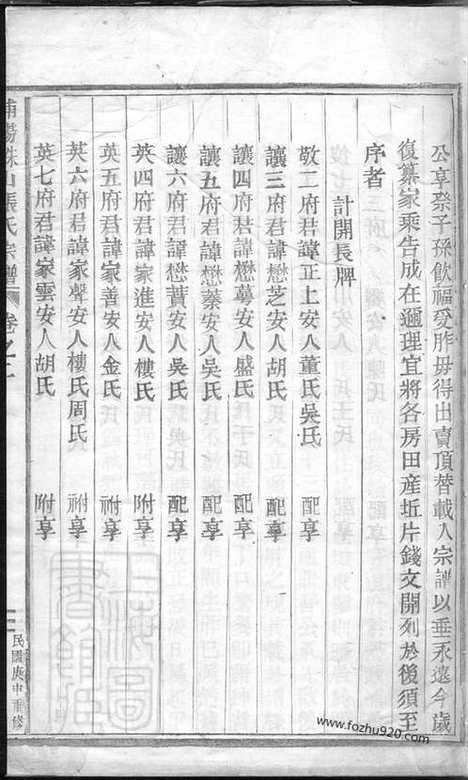 公享祭子孫飲福受胙毋得出賣頂替載入宗譜以垂永遠今歲
復纂家乘告成在邇理宜將各房田產坵片錢文開列於後須至
序者
計開長牌
敬二府君諱正上安人董氏吳氏 配享
讓三府君諱懋芝安人胡氏 配享
讓四府君諱懋蕚安人盛氏 配享
讓五府君諱懋蓁安人吳氏 配享
讓六府君諱懋蕡安人吳氏 配享
英四府君諱家進安人樓氏 附享
英五府君諱家善安人金氏 祔享
英六府君諱家聲安人樓氏周氏 祔享
英七府君諱家雲安人胡氏 附享
浦陽珠山張氏宗譜 卷之二
民國庚申重修
上海圖書館藏
www.fozhu920.com